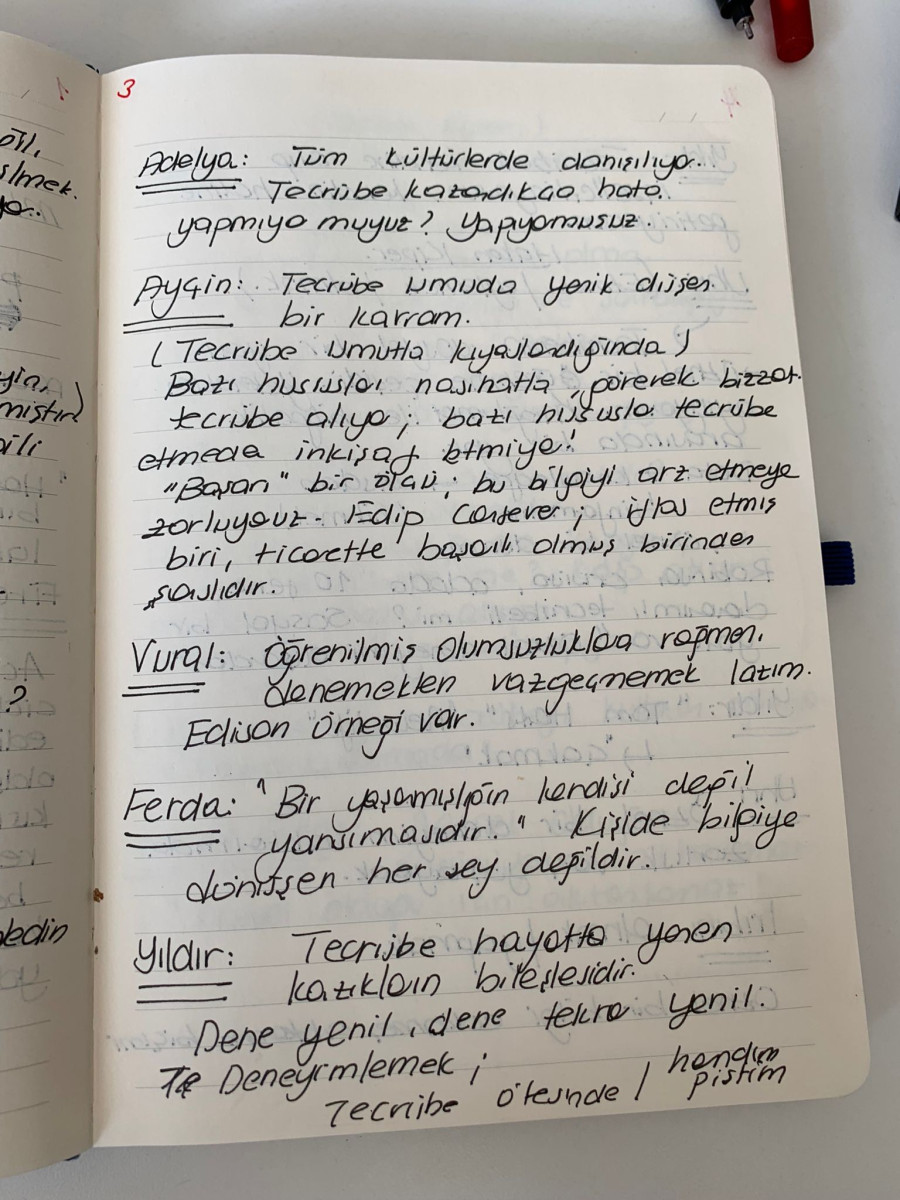 3
Adelya: Tüm kültürlerde danışılıyo..
Tecrübe kazandıkça hata
yapmıyo muyuz? Yapıyomusuz.
Ayçin: Tecrübe umuda yenik düşen
bir kavram.
(Tecrübe umutla kıyaslandığında)
Bazı hususlar nasihatla, görerek bizzat
tecrübe alıyo; bazı hususla tecrübe
etmede inkişaf etmiyo!
"Başarı" bir ölçü; bu bilgiyi arz etmeye
zorluyouz. Edip Cansever; iflas etmiş
biri, ticarette başarılı olmuş birinden
şaslıdır.
Vural: Öğrenilmiş olumsuzluklara rağmen,
denemekten vazgeçmemek lazım.
Edison örneği var.
Ferda: "Bir yaşamışlığın kendisi değil
yansımasıdır." Kişide bilgiye
dönüşen her şey değildir.
Yıldır: Tecrübe hayatta yenen
kazıkların bileşkesidir.
Dene yenil, dene tekra yenil.
Deneyimlemek;
Tecrübe ötesinde / hamdım
piştim